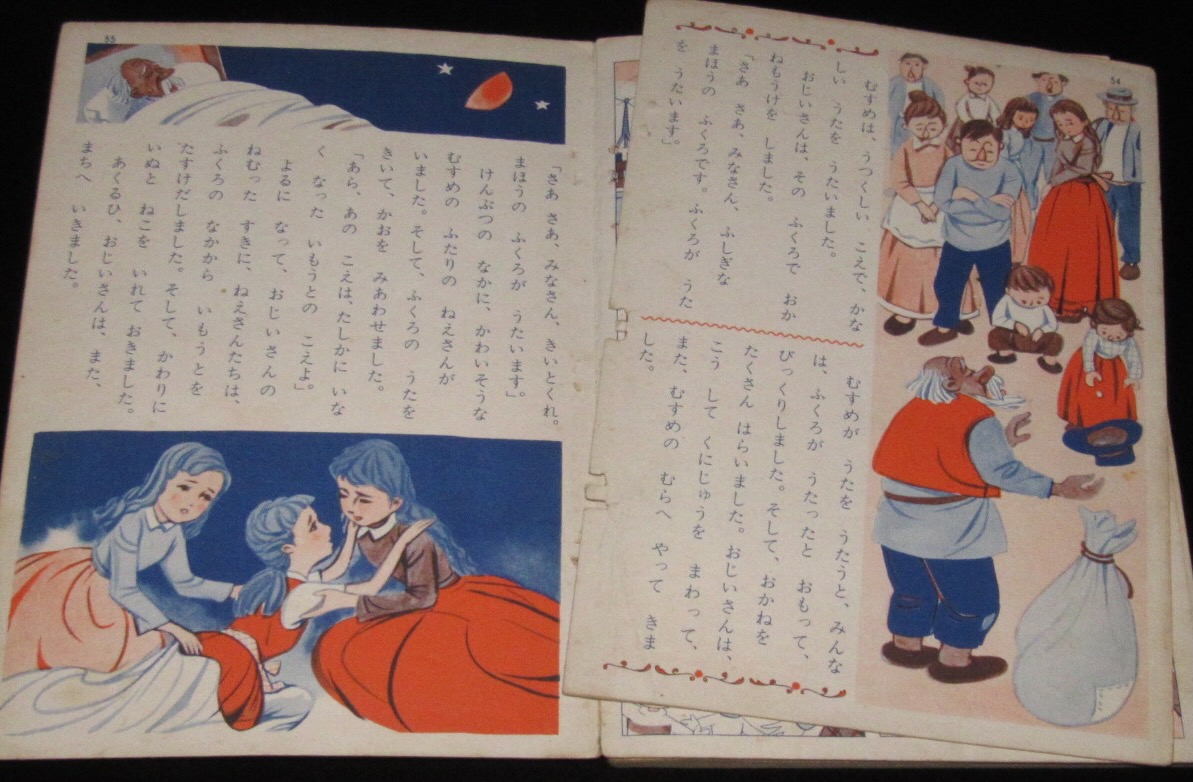 54
むすめは、うつくしい こえで、かな
しい うたを うたいました。
おじいさんは、その ふくろで おか
ねもうけを しました。
「さあ さあ、みなさん、ふしぎな
まほうの ふくろです。ふくろが うた
を うたいます」。
むすめが うたを うたうと、みんな
は、ふくろが うたったと おもって、
びっくりしました。そして、おかねを
たくさん はらいました。おじいさんは、
こう して くにじゅうを まわって、
また、むすめの むらへ やって きま
した。
55
「さあ さあ、みなさん、きいとくれ。
まほうの ふくろが うたいます」。
けんぶつの なかに、かわいそうな
むすめの ふたりの ねえさんが
いました。そして、ふくろの うたを
きいて、かおを みあわせました。
「あら、あの こえは、たしかに いな
く なった いもうとの こえよ」。
よるに なって、おじいさんの
ねむった すきに、ねえさんたちは、
ふくろの なかから いもうとを
たすけだしました。そして、かわりに
いぬと ねこを いれて おきました。
あくるひ、おじいさんは、また、
まちへ いきました。